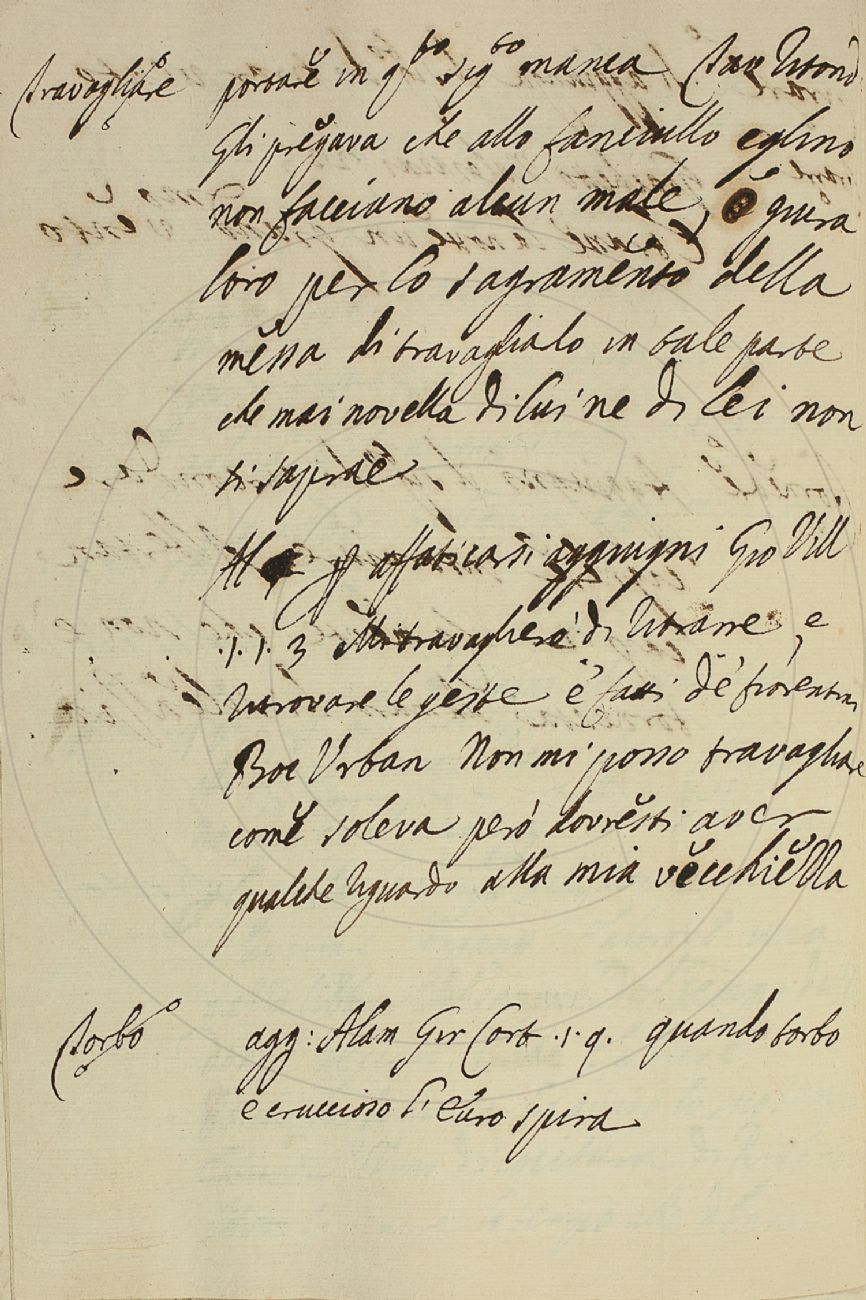 travagliare
portare in q.to sig.to manca Tav Riton
gli pregava che allo fanciullo eglino
non facciano alcun male, e giura
loro per lo sagramento della
messa di travaglialo in tale parte
che mai novella di lui ne di lei non
si saprae
Al § affaticarsi aggiugni Gio Vill
.1.1.3 Mi travaglierò di ritrarre, e
ritrovare le geste e fatti de fiorentini
Boc Urban Non mi posso travagliare
come soleva però dovresti aver
qualche riguardo alla mia vecchiella
torbo
agg: Alam Gir Cort .1.9. quando torbo
e cruccioso l'Euro spira